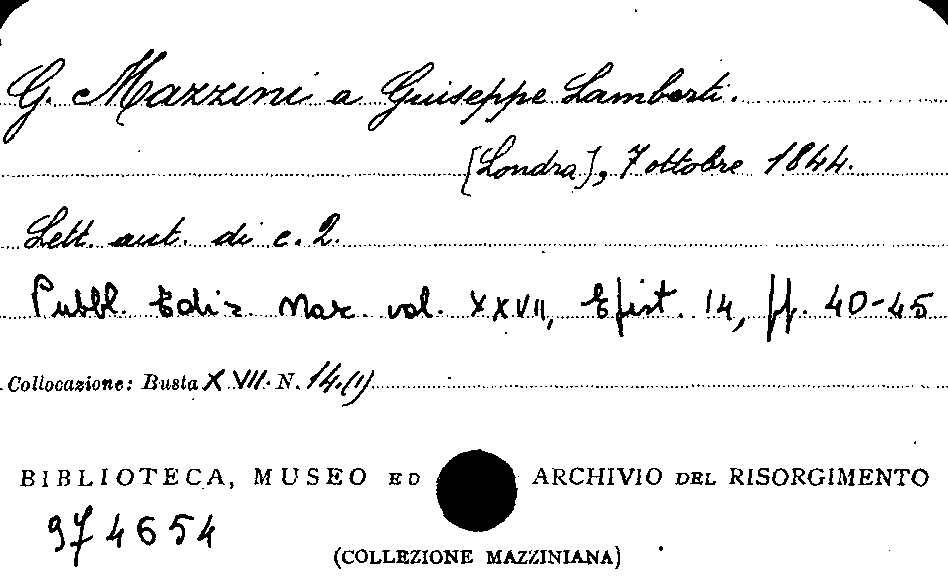 G. Mazzini a Guiseppe Lamberti.
[Londra], 7 ottobre 1844.
Lett. aut. di c. 2.
Pubbl. Ediz. Naz. vol. XXVII, Epist. 14, pp. 40-45
Collocazione: Busta XVII. N. 14.(1)
BIBLIOTECA, MUSEO ED ARCHIVIO DEL RISORGIMENTO
974654
(COLLEZIONE MAZZINIANA)